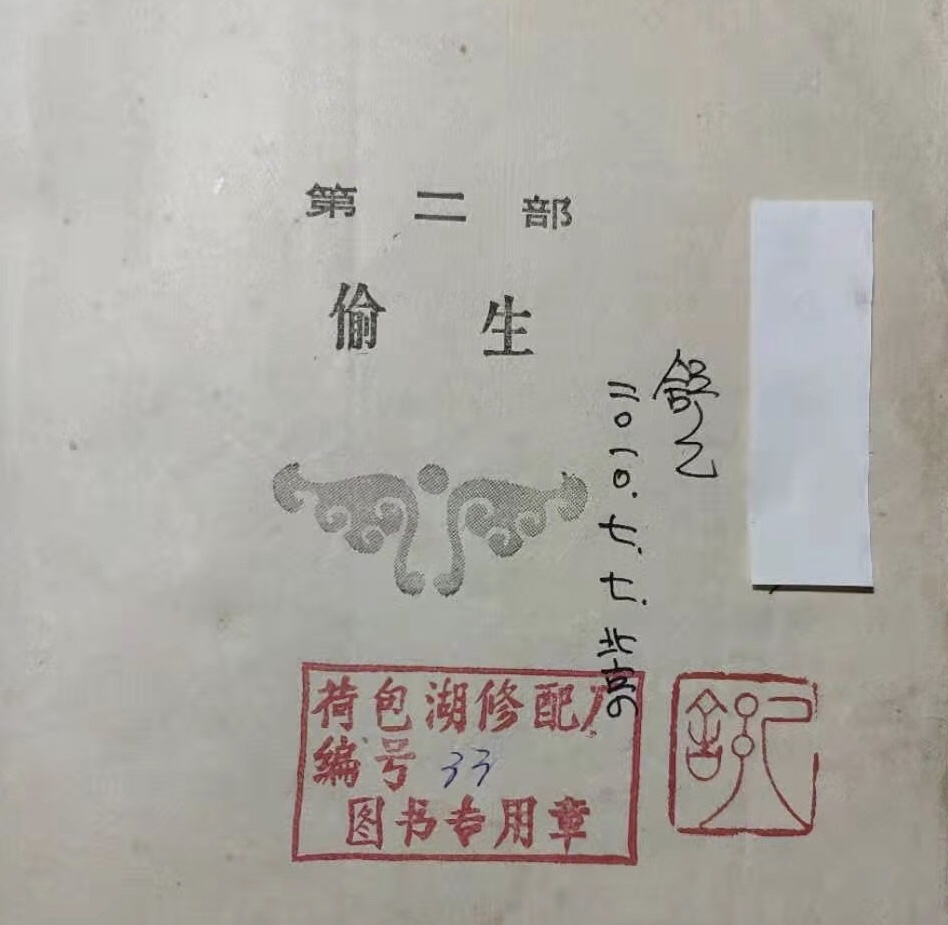 第二部
偷生
舒乙
二〇一〇.七.七.北京
荷包湖修配厂
编号 33
图书专用章
舒乙